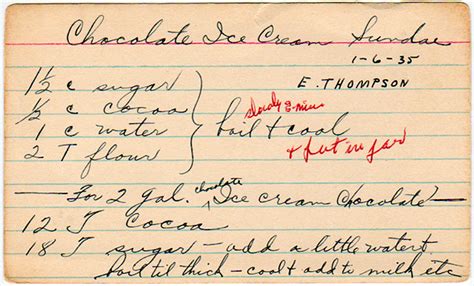 Chocolate Ice Cream Sundae
1-6-35
E. THOMPSON
1½ c sugar
½ c cocoa
1 c water
2 T flour
slowly 8-min
boil & cool
& put in jar
For 2 gal. chocolate Ice cream Chocolate
12 T cocoa
18 T sugar - add a little water &
boil til thick - cool & add to milk etc